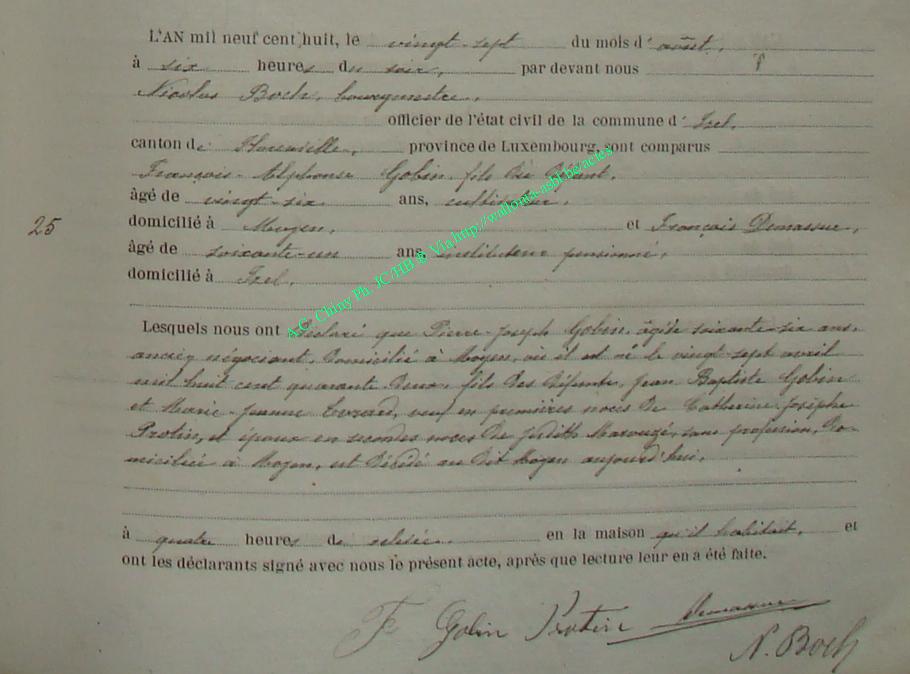 L'AN mil neuf cent huit, le vingt-sept du mois d'août,
à six heures du soir, par devant nous
Nicolas Boch, bourgmestre,
officier de l'état civil de la commune d'Izel,
canton de Florenville, province de Luxembourg, sont comparus
François-Alphonse Gobin, fils du défunt,
âgé de vingt-six ans, cultivateur,
25
domicilié à Moyen, et François Demassue,
âgé de soixante-un ans, instituteur pensionné,
domicilié à Izel,
Lesquels nous ont déclaré que Pierre-Joseph Gobin, âgé de soixante-six ans,
ancien négociant, domicilié à Moyen, où il est né le vingt-sept avril
mil huit cent quarante deux, fils des défunts, Jean Baptiste Gobin
et Marie-Jeanne, veuf en premières noces de Catherine Josèphe
Protin, et époux en secondes noces de Judith Marouzé, sans profession, do-
miciliée à Moyen, est décédé au dit Moyen aujourd'hui,
à quatre heures de relevée, en la maison qu'il habitait, et
ont les déclarants signé avec nous le présent acte, après que lecture leur en a été faite.
F Gobin Protin Demassue
N. Boch
A.C. Chiny Ph. JC/HB ® Via http://wallonia-asbl.be/actes